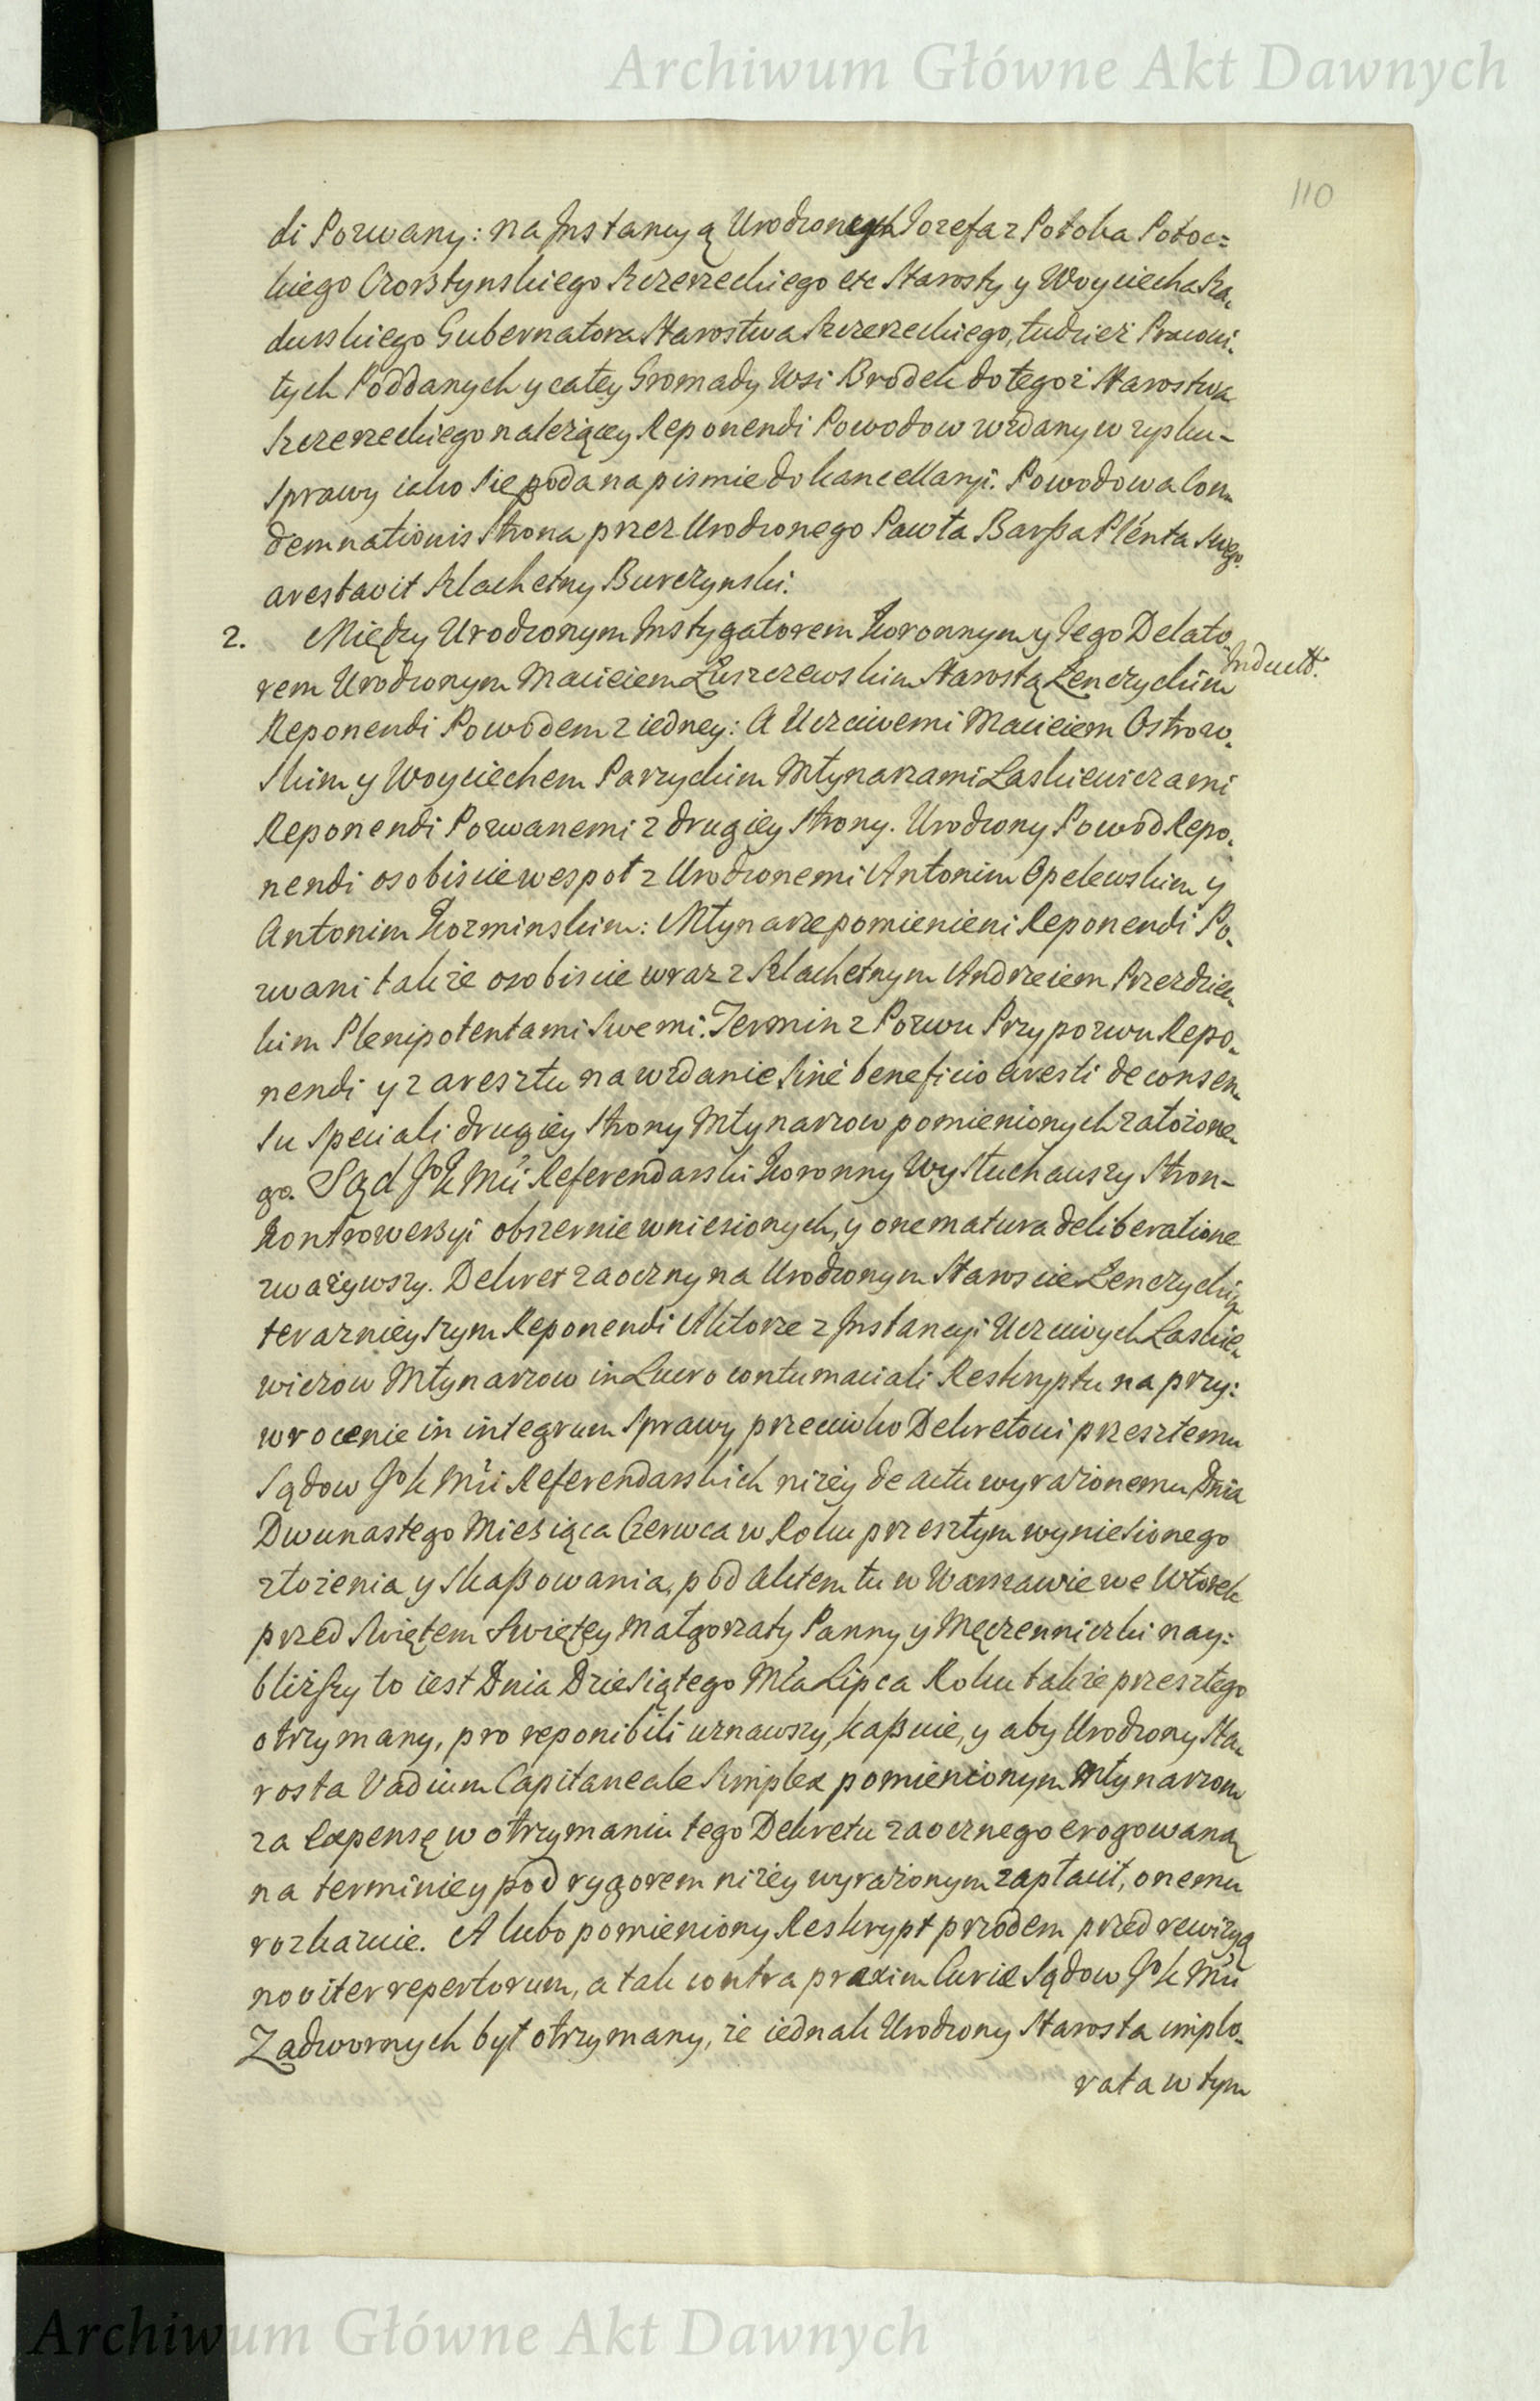 Archiwum Główne Akt Dawnych
110
di Pozwany: na Instancyą Urodzonych Jozefa z Potoka Potoc=
kiego Czorsztynskiego Szczerzeckiego etc Starosty y Woyciecha Sza-
durskiego Gubernatora Starostwa Szczerzeckiego, tudzież Pracowi-
tych Poddanych y całey Gromady Wsi Brodek do tegoż Starostwa
Szczerzeckiego należącey Reponendi Powodow wzdany w zysku-
sprawy iako się poda na pismie do kancellaryi. Powodowa Con-
demnationis strona przez Urodzonego Pawła Barßa Pl'enta swego
arestavit Szlachetny Burczynski.
2. Między Urodzonym Instygatorem Koronnym y Jego Delato-
Induct:
rem Urodzonym Macieiem Łuszczewskim Starostą Łenczyckim
Reponendi Powodem z iedney: A Uczciwemi Macieiem Ostrow-
skim y Woyciechem Parzyckim Młynarzami Laskiewiczami
Reponendi Pozwanemi z drugiey strony. Urodzony Powod Repo-
nendi osobiscie wespoł z Urodzonemi Antonim Opelewskim y
Antonim Kozminskim: Młynarze pomienieni Reponendi Po-
zwani także osobiscie wraz z Szlachetnym Andrzeiem Przerdziec-
kim Plenipotentami swemi. Termin z Pozwu Przypozwu Repo-
nendi y z aresztu na wzdanie sine beneficio aresti de consen-
su speciali drugiey strony Młynarzow pomienionych załozone-
go. Sąd JoK Mci Referendarski Koronny Wysłuchawszy stron-
Kontrowersyi obszernie wniesionych, y one matura deliberatione
zwazywszy. Dekret zaoczny na Urodzonym Staroscie Łenczyckim
terazznieyszym Reponendi Aktorze z Instancyi Uczciwych Laskie-
wiczow Młynarzow in Lucro contumaciali Reskryptu na przy:
wrocenie in integrum sprawy przeciwko Dekretowi przeszłemu
Sądow JoK Mci Referendarskich nizey de actu wyrażonemu Dnia
Dwunastego Miesiąca Czerwca w Roku przeszłym wyniesionego
złożenia y skaßowania, pod aktem tu w Warszawie we Wtorek
przed Swiętem Swiętey Małgorzaty Panny y Męczenniczki nay:
bliższy to iest Dnia Dziesiątego Mca Lipca Roku także przeszłego
otrzymany, pro reponibili uznawszy, kaßuie, y aby Urodzony Sta-
rosta Vadium Capitaneale Simplex pomienionym Młynarzom
za Expensę w otrzymaniu tego Dekretu zaocznego erogowaną
na terminie y pod rygorem nizey wyrażonym zapłacił, onemu
rozkazuie. A lubo pomieniony Reskrypt przodem przed rewizyą
noviter repertorum, a tak contra praxim Curiæ Sądow JoK Mci
Zadwornych był otrzymany, że iednak Urodzony Starosta implo-
rata w tym
Archiwum Główne Akt Dawnych